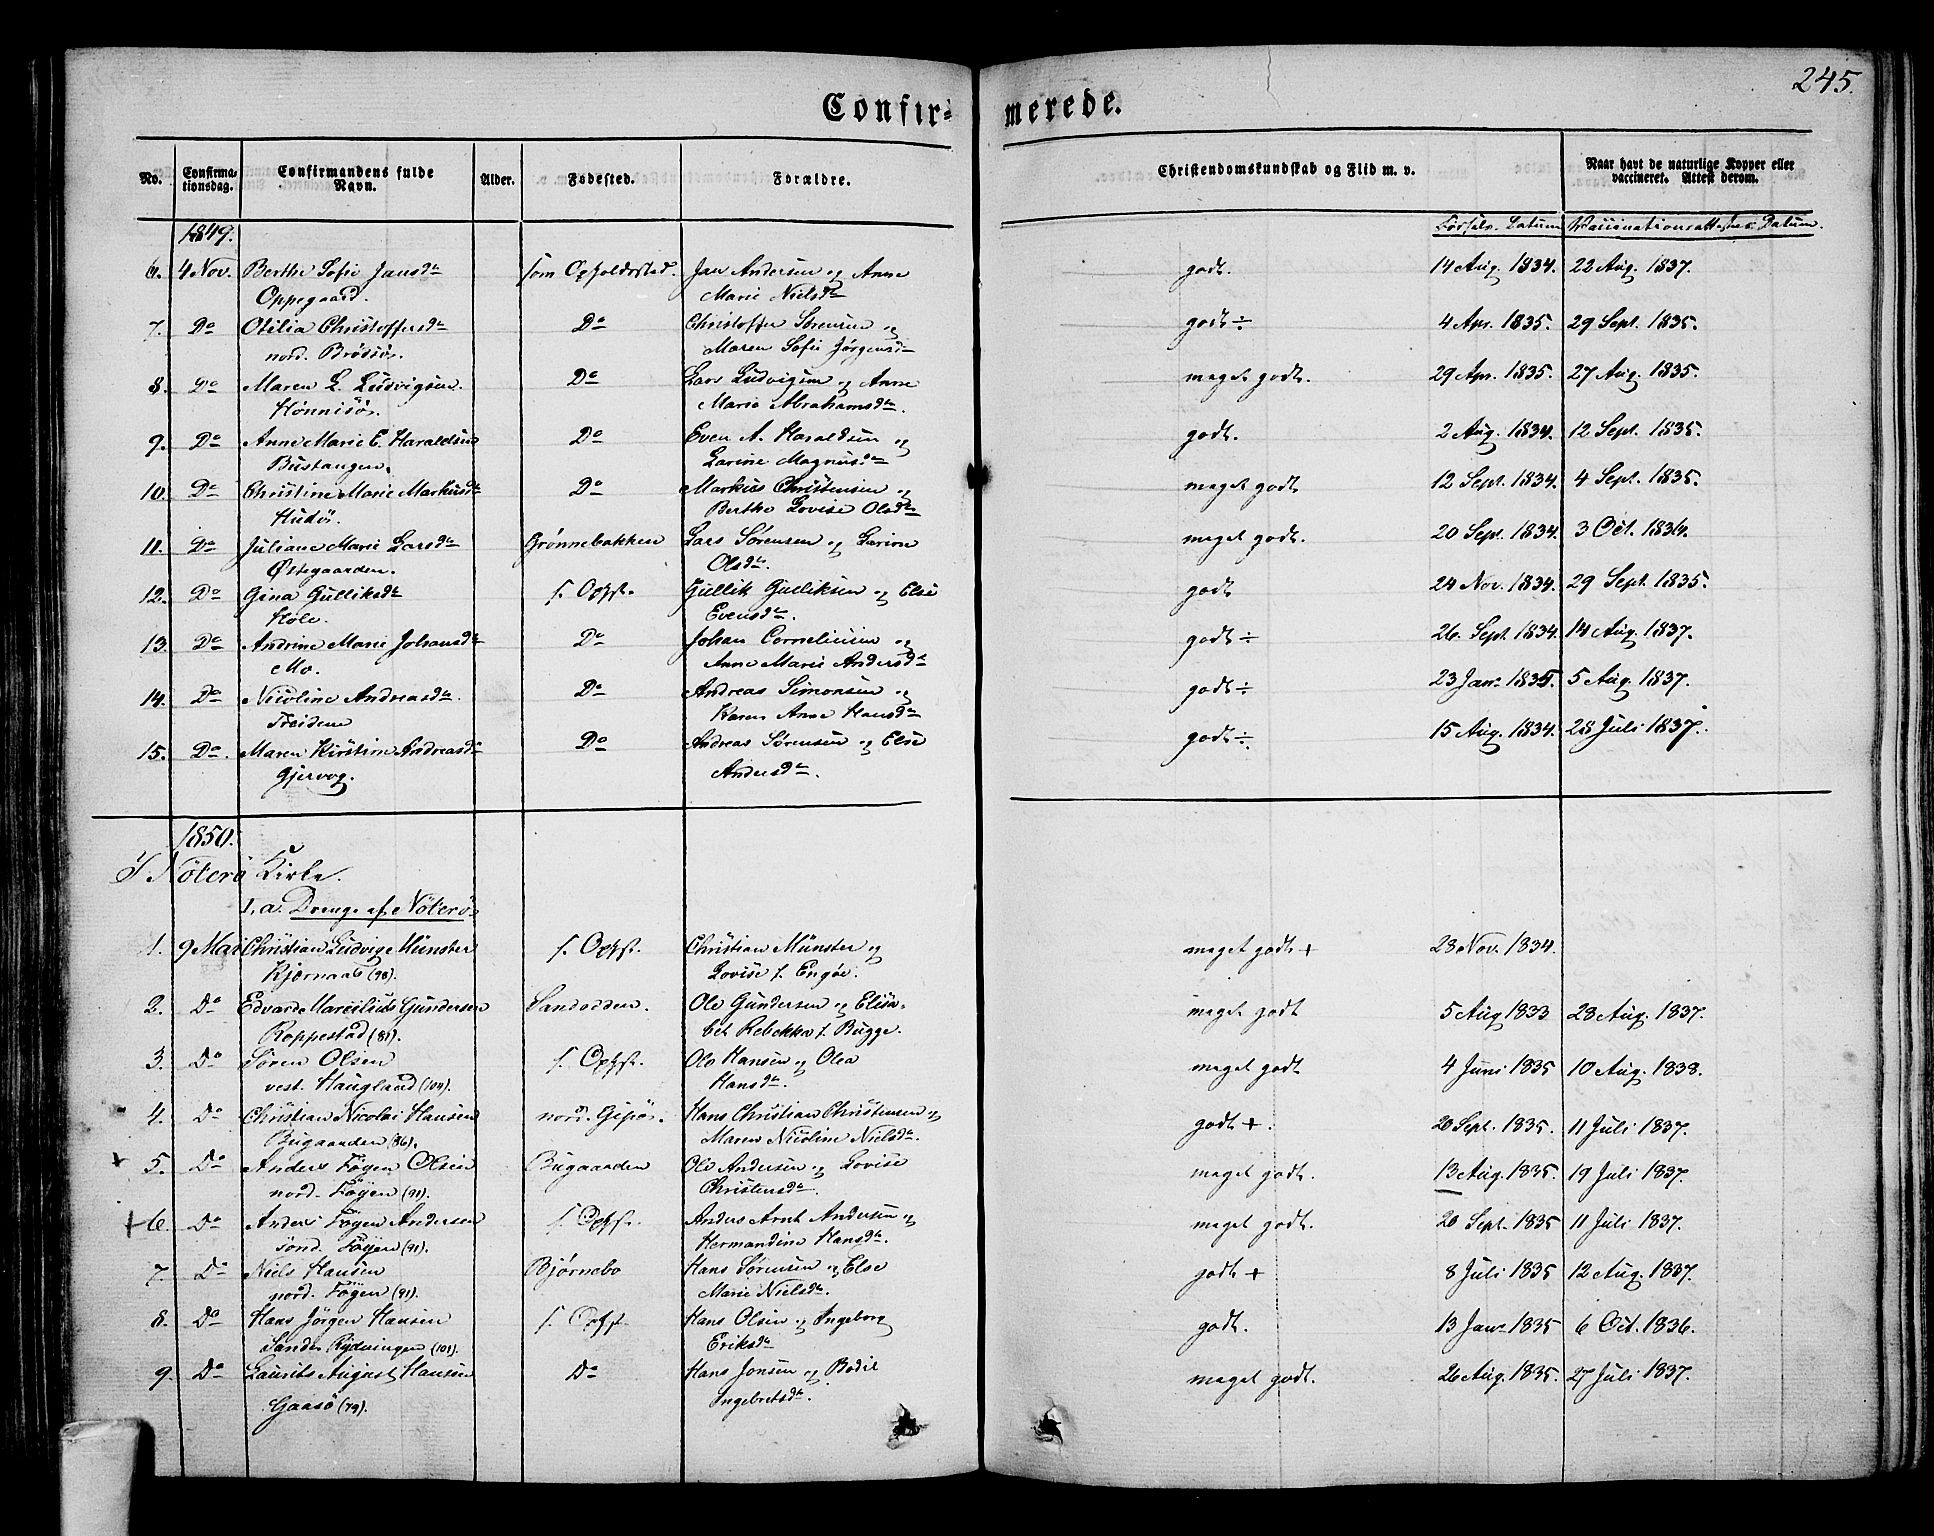 245.
Confir- merede.
No. Confirmationsdag. Confirmandens fulde Navn. Alder. Fødested. Forældre. Christendomskundskab og Flid m. v. Naar havt de naturlige Kopper eller vaccineret. Attest derom.
1849. Fødsels Datum Vaccinationsattestens Datum.
6. 4 Nov. Berthe Sofie Jansdtr som Opholdsstad. Jan Andersen og Anne godt. 14 Aug. 1834. 22 Aug. 1837.
Oppegaard. Marie Nielsdtr
7. Do Otilia Christoffersdtr Do Christoffer Sørensen og godt ÷ 4 Apr. 1835. 29 Sept. 1835.
nord. Brødsø. Maren Sofie Jørgensdtr
8. Do Maren L. Ludvigsen. Do Lars Ludvigsen og Anne meget godt. 29 Apr. 1835. 27 Aug. 1835.
Hønnisø. Marie Abrahamsdtr.
9. Do Anne Marie E. Haraldsen Do Even A. Haraldsen og godt. 2 Aug. 1834. 12 Sept. 1835.
Bustangen. Larine Magnusdtr
10. Do Christine Marie Markusdtr Do Markus Christensen og meget godt 12 Sept. 1834. 4 Sept. 1835.
Hudø. Berthe Lovise Olsdtr
11. Do Juliane Marie Larsdtr Grønnebakken Lars Sørensen og Larine meget godt. 20 Sept. 1834. 3 Oct. 1834.
Østegaarden. Olsdtr.
12. Do Gina Gulliksdtr s. Opst. Gullik Gulliksen og Else godt 24 Nov. 1834. 29 Sept. 1835.
Hole. Evensdtr.
13. Do Andrine Marie Johansdtr Do Johan Corneliusen og godt ÷ 26. Sept. 1834. 14 Aug. 1837.
Mo. Anne Marie Andersdtr
14. Do Nicoline Andreasdtr. Do Andreas Simonsen og godt ÷ 23 Jan. 1835. 5 Aug. 1837.
Treidene Karen Anne Hansdtr
15. Do. Maren Kirstine Andreasdtr Do Andreas Sørensen og Else godt ÷. 15 Aug. 1834. 28 Juli 1837.
Gjervog. Andersdtr.
1850.
I Nøterø Kirke.
1, a. Drenge af Nøterø.
1. 9 Mai Christian Ludvig Münster s. Opst. Christian Münster og meget godt + 28 Nov. 1834.
Kjærnaas (98). Lovise f. Engøe.
2. Do Edvard Marcilius Gundersen Sandodden. Ole Gundersen og Elisa- meget godt 5 Aug 1833 28 Aug. 1837.
Roppestad (81). bet Rebekka f. Bugge.
3. Do Søren Olsen s. Opst. Ole Hansen og Olea meget godt 4 Juni 1835 10 Aug. 1838.
vest. Haugland (104). Hansdtr.
4. Do Christian Nicolai Hansen nord. Gipø. Hans Christian Christensen og godt +. 20 Sept. 1835. 11 Juli 1837.
Bugaarden (86). Maren Nicoline Nielsdtr.
+ 5. Do Anders Føyen Olsen Bugaarden Ole Andersen og Lovise meget godt. 13 Aug. 1835 19 Juli 1837.
nord. Føyen (91). Christensdtr.
+ 6. Do Anders Føyen Andersen s. Opst. Anders Arnt Andersen og meget godt. 20 Sept. 1835 11 Juli 1837.
sønd. Føyen (91). Hermandine Hansdtr.
7. Do Niels Hansen Bjørnebo Hans Sørensen og Else godt + 8 Juli 1835 12 Aug. 1837.
nord. Føyen (91). Marie Nielsdtr.
8. Do Hans Jørgen Hansen s. Opst Hans Olsen og Ingeborg godt. 13 Jan. 1835 6 Oct. 1836.
Sandø Rydningen (101). Eriksdtr
9. Do Laurits August Hansen Do Hans Jonsen og Bodil meget godt. 26 Aug. 1835. 27 Juli 1837.
Gaasø (79). Ingebretsdtr.